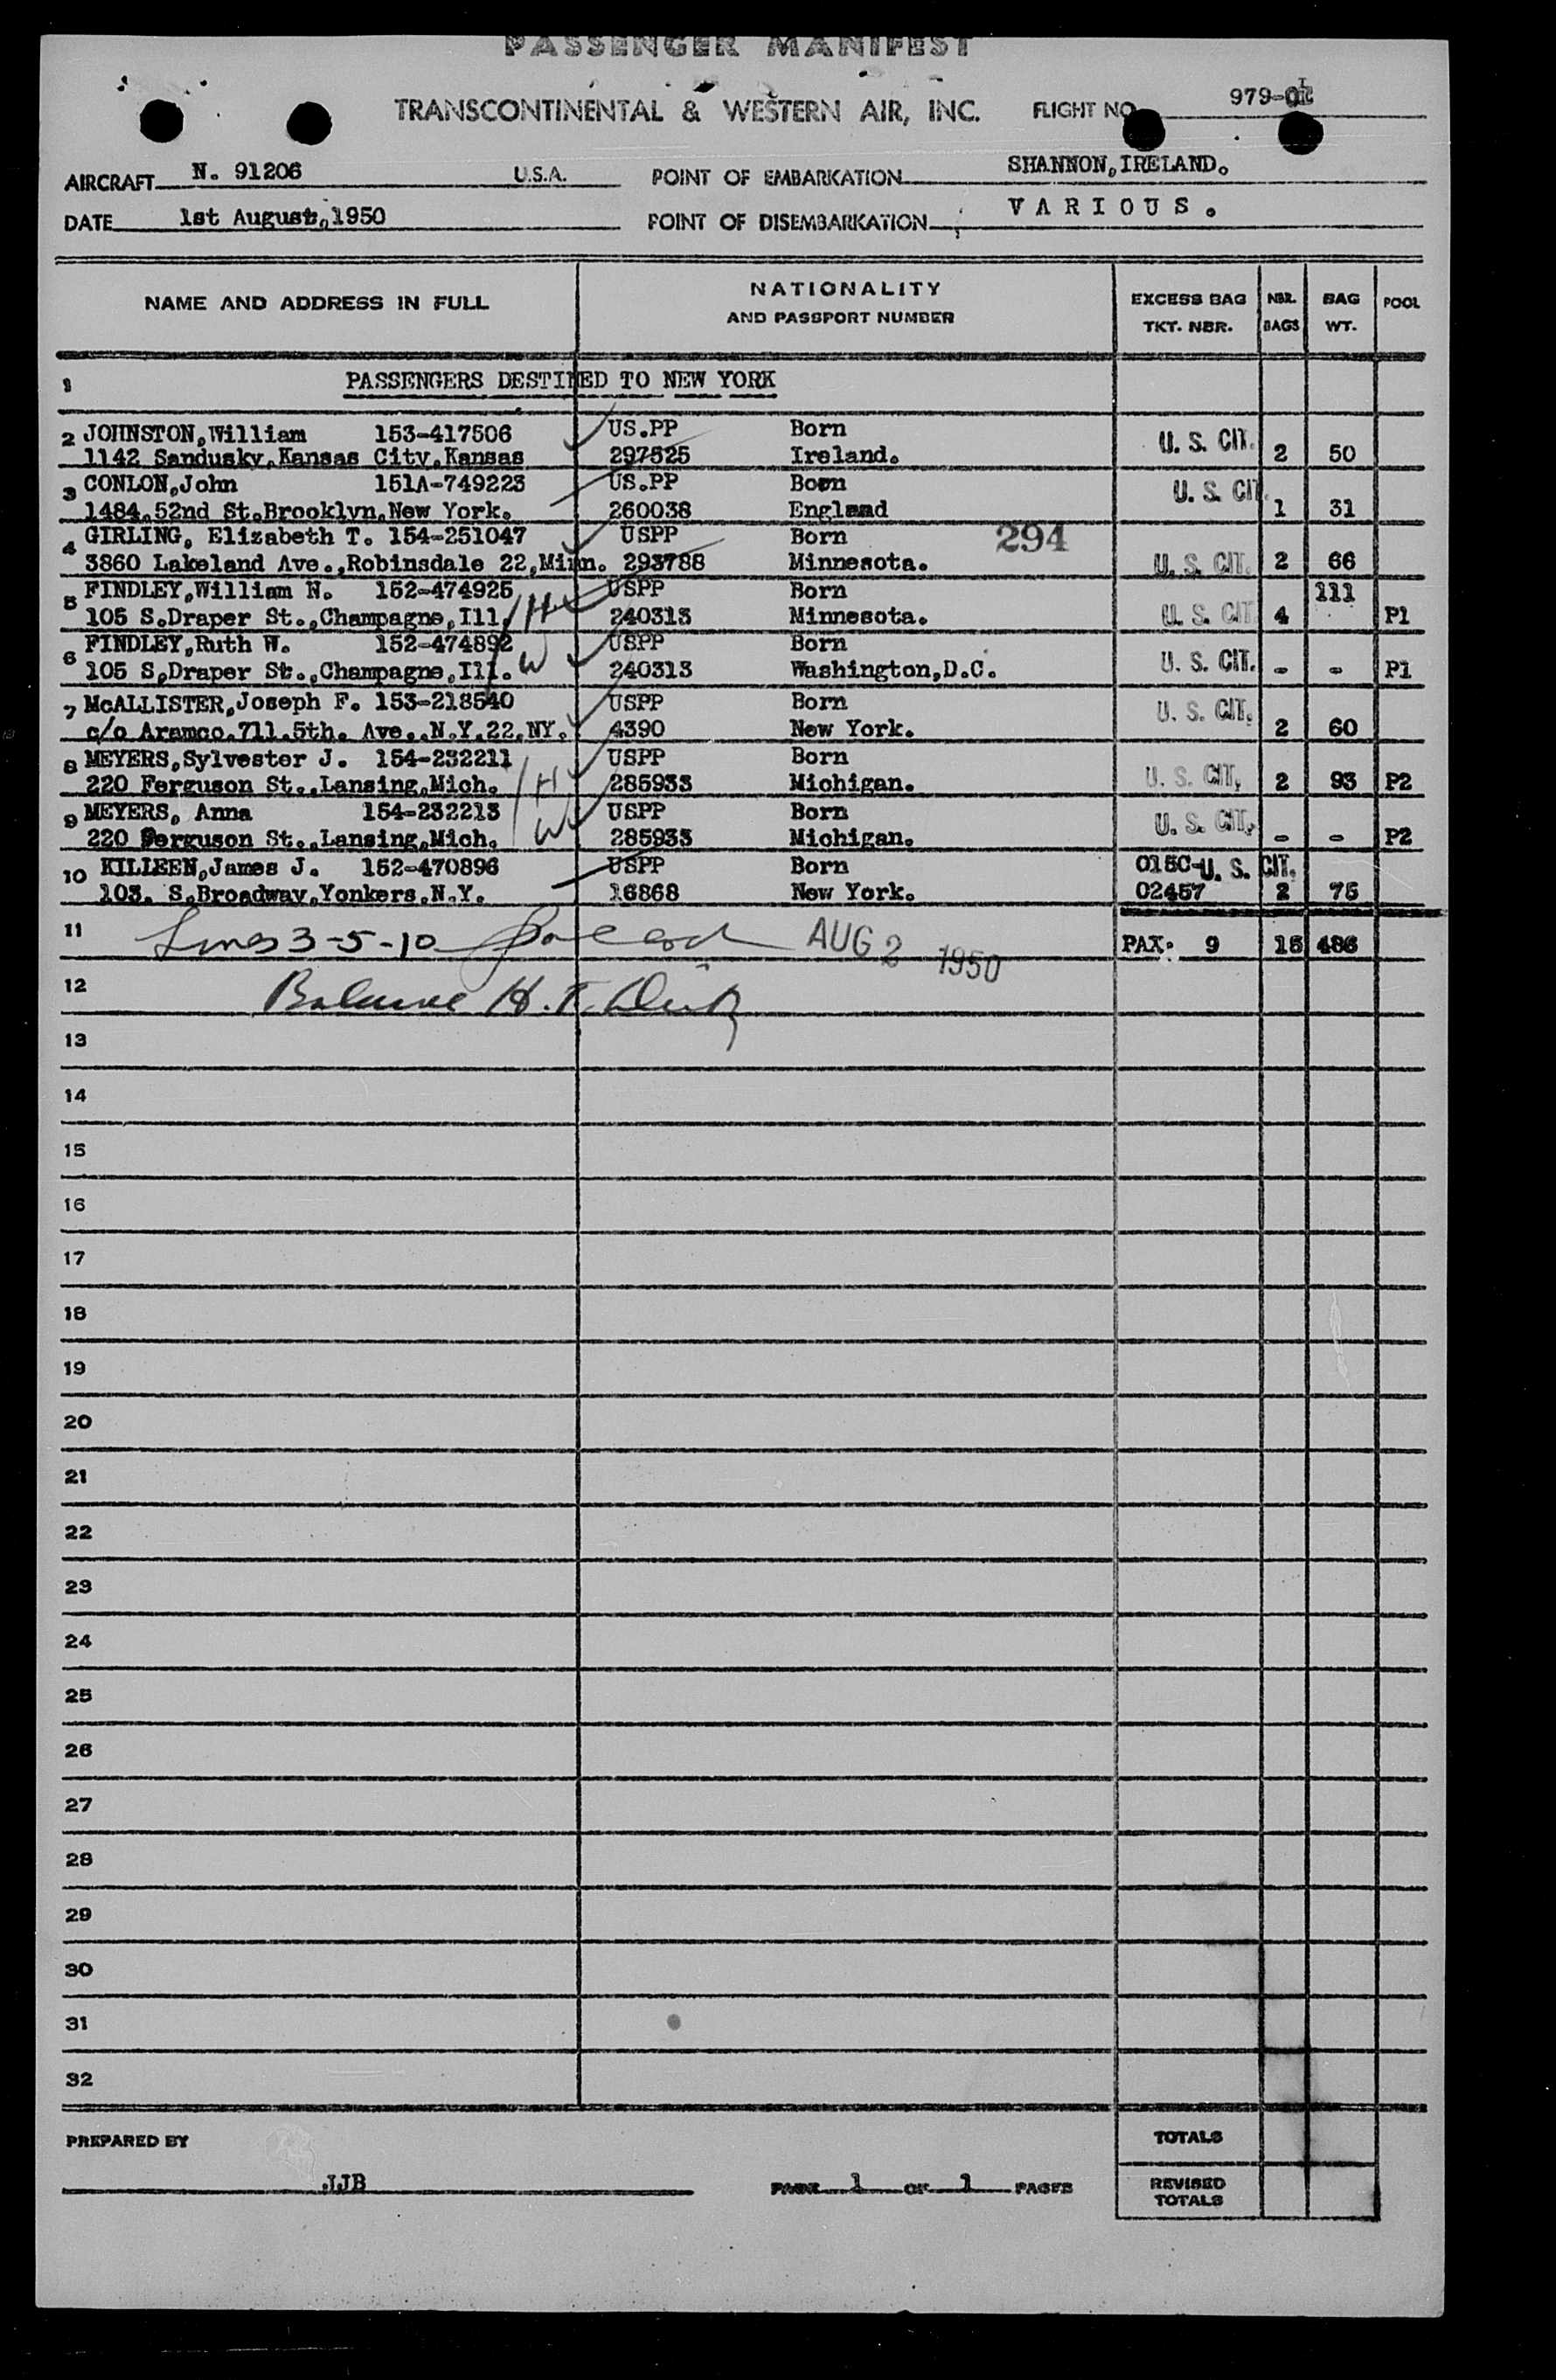 PASSENGER MANIFEST
TRANSCONTINENTAL & WESTERN AIR, INC. FLIGHT NO. 979-01
AIRCRAFT N. 91206 U.S.A. POINT OF EMBARKATION SHANNON,IRELAND.
DATE 1st August,1950 POINT OF DISEMBARKATION VARIOUS.
NAME AND ADDRESS IN FULL NATIONALITY AND PASSPORT NUMBER EXCESS BAG TKT. NBR. NBR. BAGS BAG WT. POOL
1 PASSENGERS DESTINED TO NEW YORK
2 JOHNSTON,William 153-417506 US.PP Born
1142 Sandusky,Kansas City,Kansas 297525 Ireland. U. S. CIT. 2 50
3 CONLON,John 151A-749223 US.PP Born U. S. CIT.
1484,52nd St.Brooklyn,New York. 260038 England 1 31
4 GIRLING, Elizabeth T. 154-251047 USPP Born 294
3860 Lakeland Ave.,Robinsdale 22,Minn. 293788 Minnesota. U. S. CIT. 2 66
5 FINDLEY,William N. 152-474925 USPP Born 111
105 S.Draper St.,Champagne,Ill. H 240313 Minnesota. U. S. CIT 4 P1
6 FINDLEY,Ruth W. 152-474892 USPP Born
105 S.Draper St.,Champagne,Ill. W 240313 Washington,D.C. U. S. CIT. - - P1
7 McALLISTER,Joseph F. 153-218540 USPP Born U. S. CIT.
c/o Aramco.711.5th. Ave.,N.Y.22,NY. 4390 New York. 2 60
8 MEYERS,Sylvester J. 154-232211 USPP Born
220 Ferguson St.,Lansing,Mich. H 285933 Michigan. U. S. CIT. 2 93 P2
9 MEYERS, Anna 154-232213 USPP Born
220 Ferguson St.,Lansing,Mich. W 285933 Michigan. U. S. CIT. - - P2
10 KILLEEN,James J. 152-470896 USPP Born 015C- U. S. CIT.
103. S.Broadway,Yonkers.N.Y. 16868 New York. 02457 2 75
11 Lines 3-5-10 AUG 2 1950 PAX. 9 15 486
12 Balance H.
13
14
15
16
17
18
19
20
21
22
23
24
25
26
27
28
29
30
31
32
PREPARED BY TOTALS
JJB PAGE 1 OF 1 PAGES REVISED TOTALS